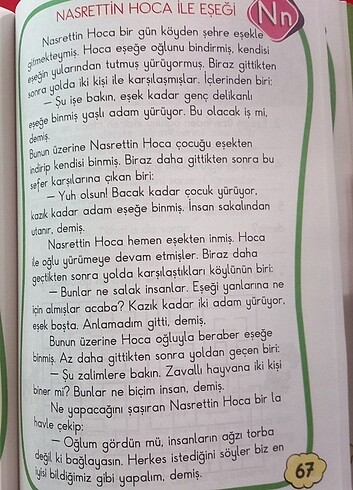 NASRETTİN HOCA İLE EŞEĞİ
Nn
Nasrettin Hoca bir gün köyden şehre eşekle
gitmekteymiş. Hoca eşeğe oğlunu bindirmiş, kendisi
eşeğin yularından tutmuş yürüyormuş. Biraz gittikten
sonra yolda iki kişi ile karşılaşmışlar. İçlerinden biri:
– Şu işe bakın, eşek kadar genç delikanlı
eşeğe binmiş yaşlı adam yürüyor. Bu olacak iş mi,
demiş.
Bunun üzerine Nasrettin Hoca çocuğu eşekten
indirip kendisi binmiş. Biraz daha gittikten sonra bu
sefer karşılarına çıkan biri:
– Yuh olsun! Bacak kadar çocuk yürüyor,
kazık kadar adam eşeğe binmiş. İnsan sakalından
utanır, demiş.
Nasrettin Hoca hemen eşekten inmiş. Hoca
ile oğlu yürümeye devam etmişler. Biraz daha
geçtikten sonra yolda karşılaştıkları köylünün biri:
– Bunlar ne salak insanlar. Eşeği yanlarına ne
için almışlar acaba? Kazık kadar iki adam yürüyor,
eşek boşta. Anlamadım gitti, demiş.
Bunun üzerine Hoca oğluyla beraber eşeğe
binmiş. Az daha gittikten sonra yoldan geçen biri:
– Şu zalimlere bakın. Zavallı hayvana iki kişi
biner mi? Bunlar ne biçim insan, demiş.
Ne yapacağını şaşıran Nasrettin Hoca bir la
havle çekip:
– Oğlum gördün mü, insanların ağzı torba
değil ki bağlayasın. Herkes istediğini söyler biz en
iyisi bildiğimiz gibi yapalım, demiş.
67